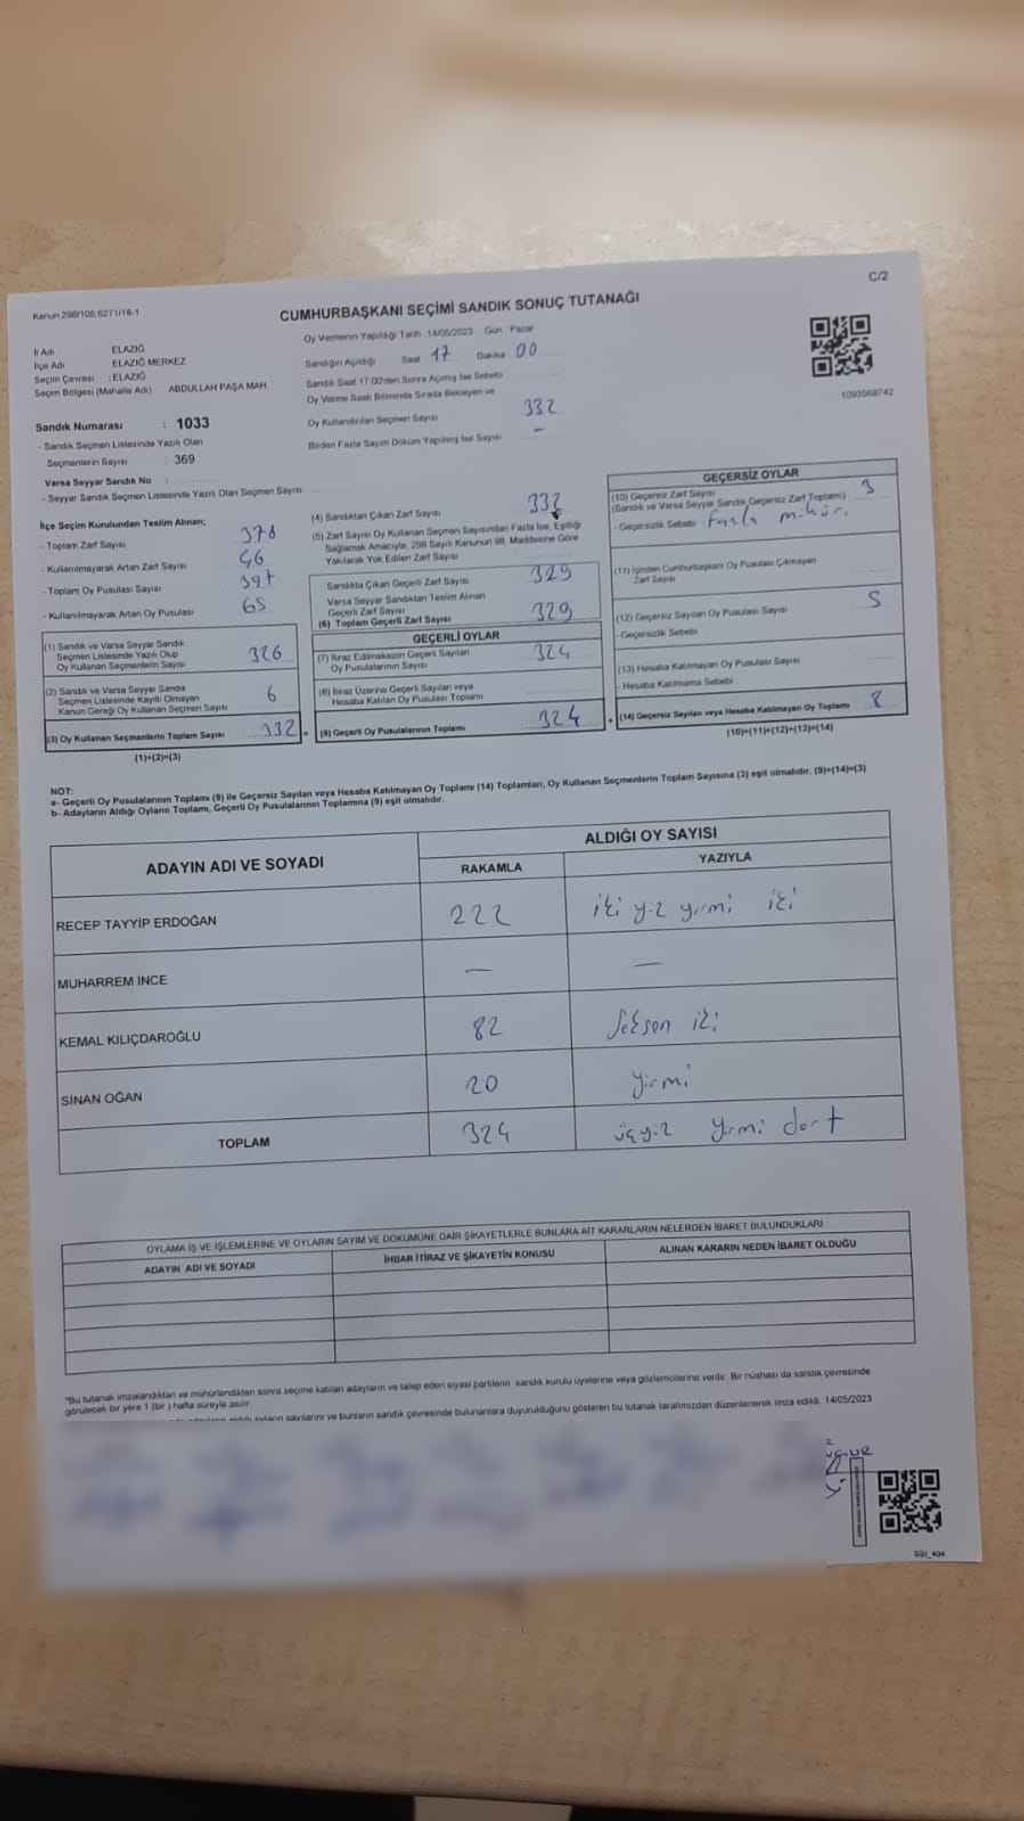 C/2
Kanun 298/106;6271/16-1
CUMHURBAŞKANI SEÇİMİ SANDIK SONUÇ TUTANAĞI
Oy Vermenin Yapıldığı Tarih 14/05/2023 Gün Pazar
İl Adı ELAZIĞ
İlçe Adı ELAZIĞ MERKEZ
Seçim Çevresi : ELAZIĞ
Seçim Bölgesi (Mahalle Adı) ABDULLAH PAŞA MAH.
Sandığın Açıldığı Saat 17 Dakika 00
Sandık Saat 17:00'den Sonra Açılmış İse Sebebi
Oy Verme Saati Bitiminde Sırada Bekleyen ve
Oy Kullandırılan Seçmen Sayısı 332
Birden Fazla Sayım Döküm Yapılmış İse Sayısı —
1093568742
Sandık Numarası : 1033
- Sandık Seçmen Listesinde Yazılı Olan
Seçmenlerin Sayısı : 369
Varsa Seyyar Sandık No :
- Seyyar Sandık Seçmen Listesinde Yazılı Olan Seçmen Sayısı
İlçe Seçim Kurulundan Teslim Alınan;
- Toplam Zarf Sayısı 378
- Kullanılmayarak Artan Zarf Sayısı 46
- Toplam Oy Pusulası Sayısı 397
- Kullanılmayarak Artan Oy Pusulası 65
(1) Sandık ve Varsa Seyyar Sandık
Seçmen Listesinde Yazılı Olup
Oy Kullanan Seçmenlerin Sayısı 326
(2) Sandık ve Varsa Seyyar Sandık
Seçmen Listesinde Kayıtlı Olmayan
Kanun Gereği Oy Kullanan Seçmen Sayısı 6
(3) Oy Kullanan Seçmenlerin Toplam Sayısı 332
(1)+(2)=(3)
(4) Sandıktan Çıkan Zarf Sayısı 332
(5) Zarf Sayısı Oy Kullanan Seçmen Sayısından Fazla İse, Eşitliği
Sağlamak Amacıyla, 298 Sayılı Kanunun 98. Maddesine Göre
Yakılarak Yok Edilen Zarf Sayısı
Sandıkta Çıkan Geçerli Zarf Sayısı 329
Varsa Seyyar Sandıktan Teslim Alınan
Geçerli Zarf Sayısı
(6) Toplam Geçerli Zarf Sayısı 329
GEÇERLİ OYLAR
(7) İtiraz Edilmeksizin Geçerli Sayılan
Oy Pusulalarının Sayısı 324
(8) İtiraz Üzerine Geçerli Sayılan veya
Hesaba Katılan Oy Pusulası Toplamı
(9) Geçerli Oy Pusulalarının Toplamı 324
GEÇERSİZ OYLAR
(10) Geçersiz Zarf Sayısı 3
(Sandık ve Varsa Seyyar Sandık Geçersiz Zarf Toplamı)
- Geçersizlik Sebebi fazla mühür.
(11) İçinden Cumhurbaşkanı Oy Pusulası Çıkmayan
Zarf Sayısı
(12) Geçersiz Sayılan Oy Pusulası Sayısı 5
- Geçersizlik Sebebi
(13) Hesaba Katılmayan Oy Pusulası Sayısı
- Hesaba Katılmama Sebebi
(14) Geçersiz Sayılan veya Hesaba Katılmayan Oy Toplamı 8
(10)+(11)+(12)+(13)=(14)
NOT:
a- Geçerli Oy Pusulalarının Toplamı (9) ile Geçersiz Sayılan veya Hesaba Katılmayan Oy Toplamı (14) Toplamları, Oy Kullanan Seçmenlerin Toplam Sayısına (3) eşit olmalıdır. (9)+(14)=(3)
b- Adayların Aldığı Oyların Toplamı, Geçerli Oy Pusulalarının Toplamına (9) eşit olmalıdır.
ADAYIN ADI VE SOYADI
ALDIĞI OY SAYISI
RAKAMLA YAZIYLA
RECEP TAYYİP ERDOĞAN 222 iki yüz yirmi iki
MUHARREM İNCE — —
KEMAL KILIÇDAROĞLU 82 Seksen iki
SİNAN OĞAN 20 yirmi
TOPLAM 324 üçyüz yirmi dört
OYLAMA İŞ VE İŞLEMLERİNE VE OYLARIN SAYIM VE DÖKÜMÜNE DAİR ŞİKAYETLERLE BUNLARA AİT KARARLARIN NELERDEN İBARET BULUNDUKLARI
ADAYIN ADI VE SOYADI İHBAR İTİRAZ VE ŞİKAYETİN KONUSU ALINAN KARARIN NEDEN İBARET OLDUĞU
"Bu tutanak imzalandıktan ve mühürlendikten sonra seçime katılan adayların ve talep eden siyasi partilerin sandık kurulu üyelerine veya gözlemcilerine verilir. Bir nüshası da sandık çevresinde
görülecek bir yere 1 (bir) hafta süreyle asılır.
sayılarını ve bunların sandık çevresinde bulunanlara duyurulduğunu gösteren bu tutanak tarafımızdan düzenlenerek imza edildi. 14/05/2023